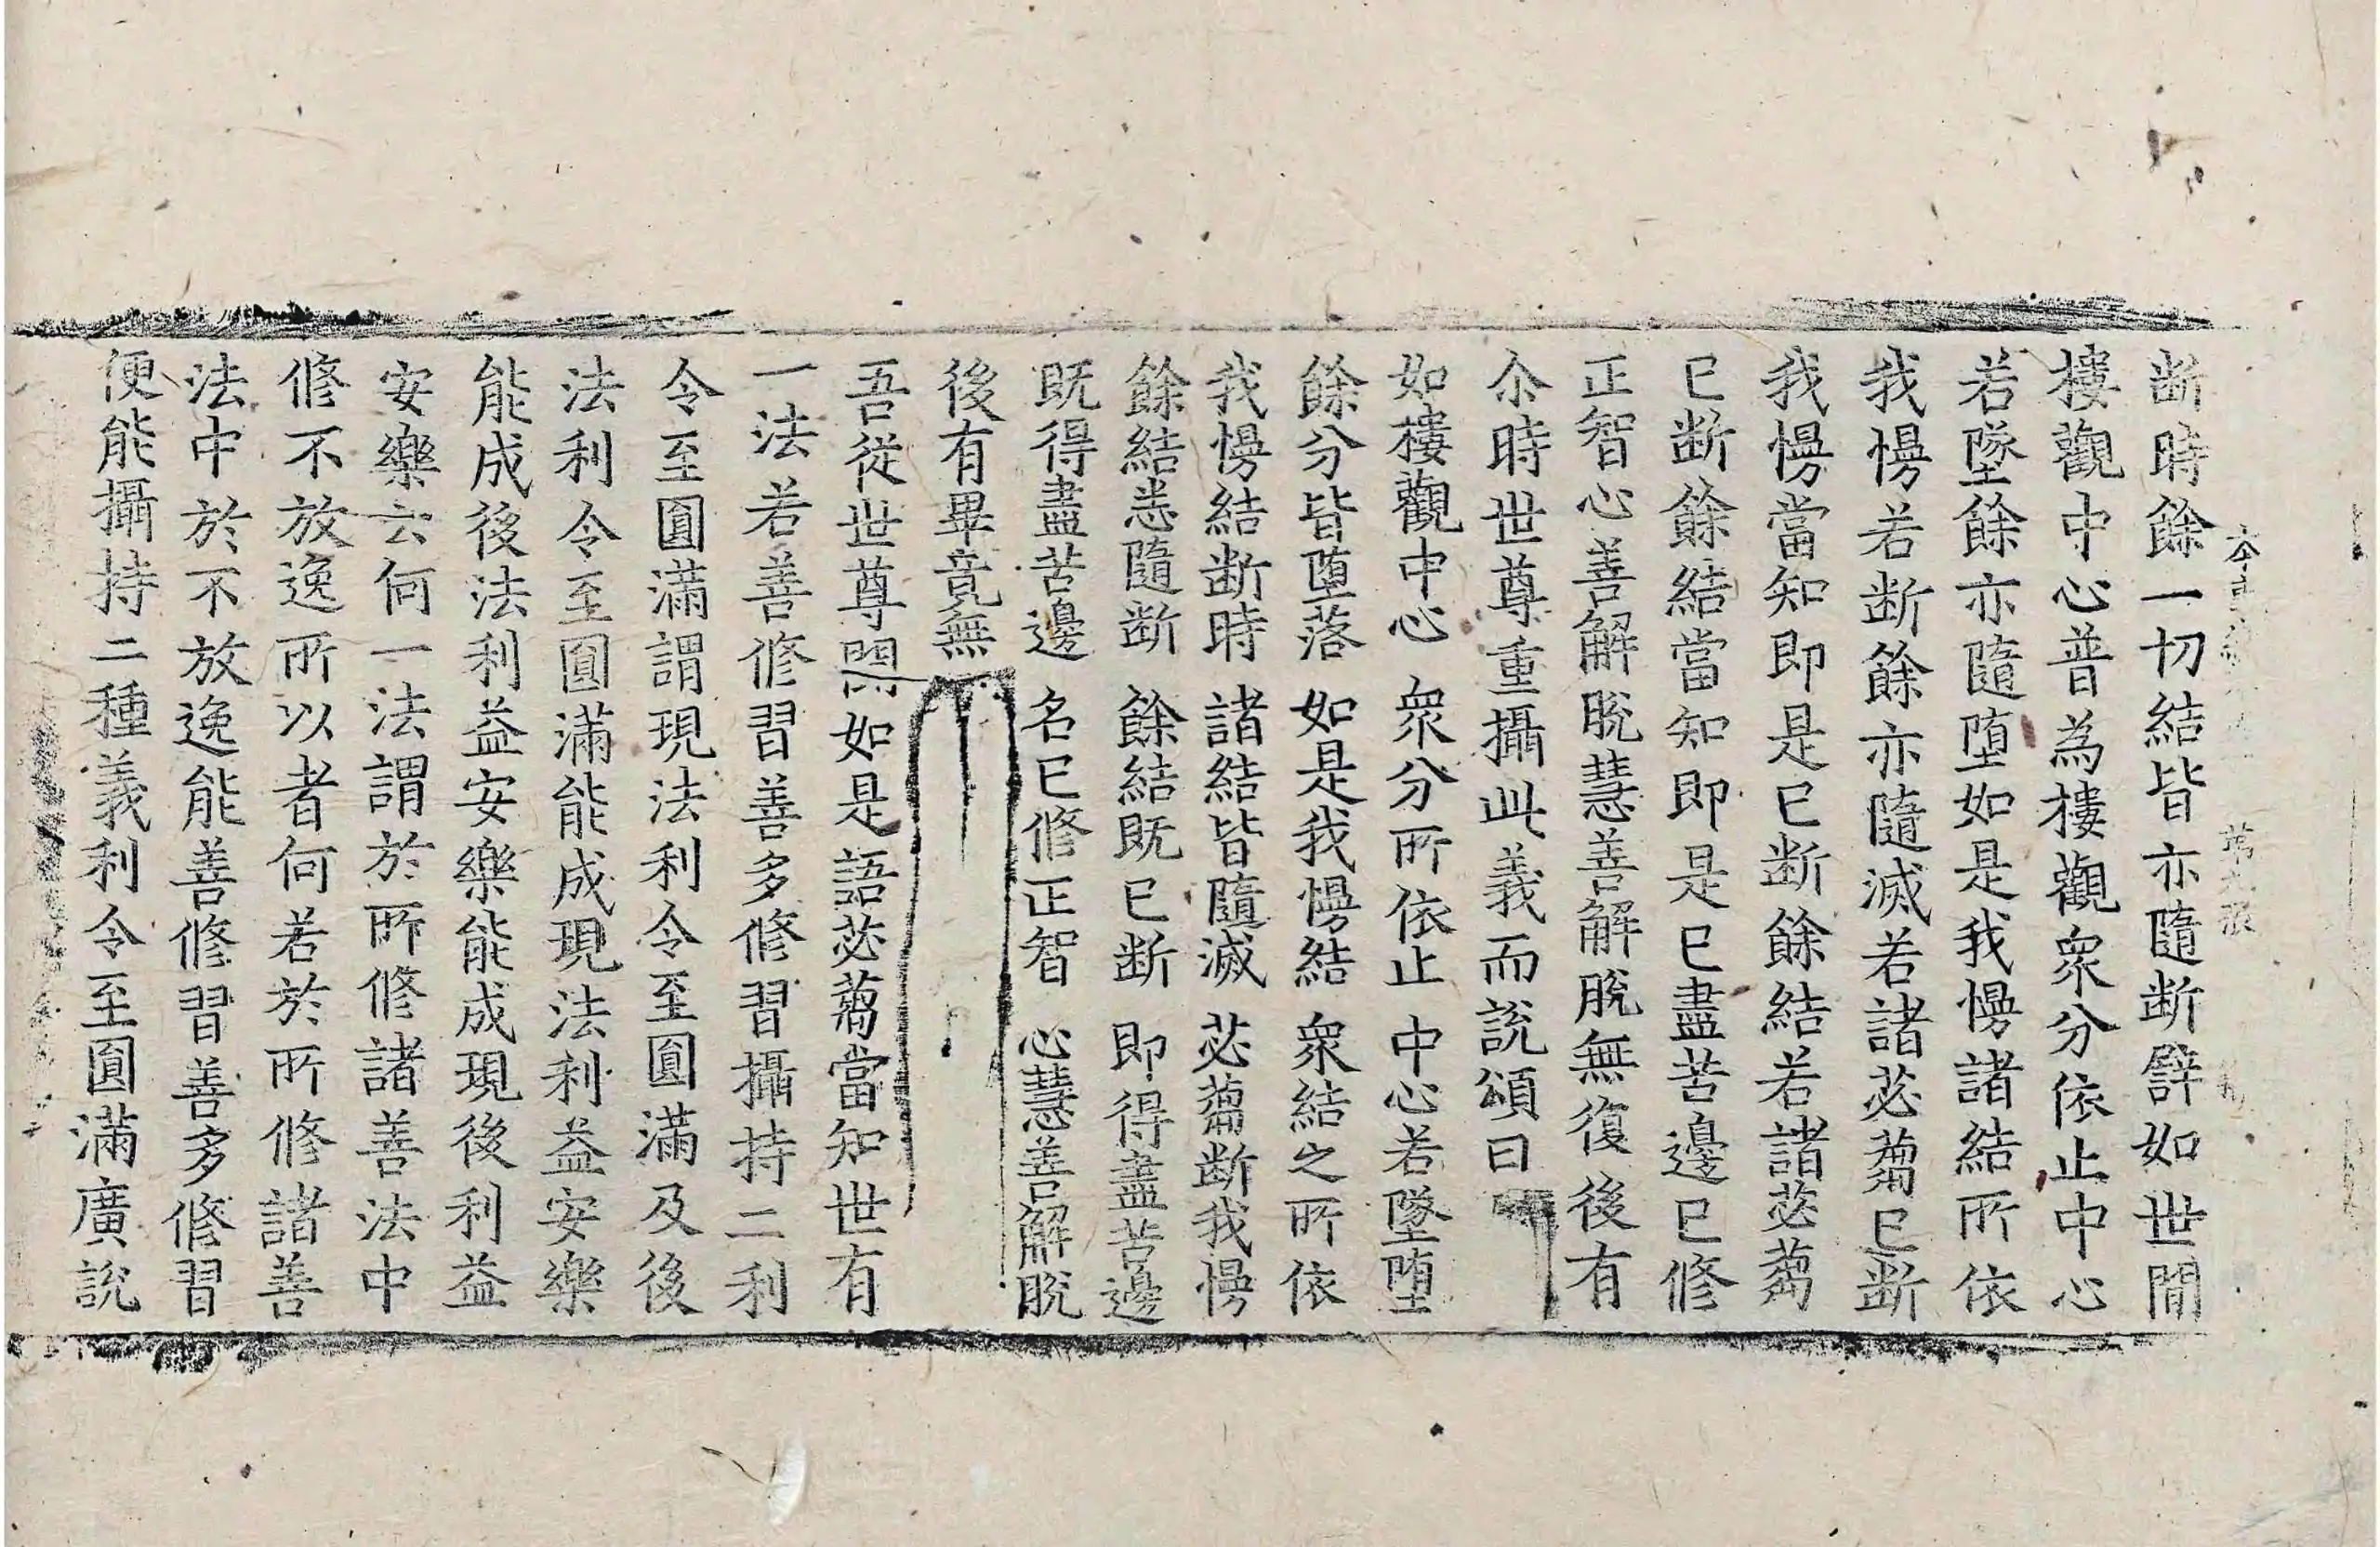 断時餘一切結皆亦隨断譬如世間
樓觀中心普為樓觀衆分依止中心
若墜餘亦隨墮如是我慢諸結所依
我慢若断餘亦隨滅若諸苾蒭已断
我慢當知即是已断餘結若諸苾蒭
已断餘結當知即是已盡苦邊已修
正智心善解脫慧善解脫無復後有
尒時世尊重攝此義而說頌曰
如樓觀中心 衆分所依止 中心若墜墮
餘分皆墮落 如是我慢結 衆結之所依
我慢結断時 諸結皆隨滅 苾蒭断我慢
餘結悉隨断 餘結既已断 即得盡苦邊
既得盡苦邊 名已修正智 心慧善解脫
後有畢竟無
吾從世尊聞如是語苾蒭當知世有
一法若善修習善多修習攝持二利
令至圓滿謂現法利令至圓滿及後
法利令至圓滿能成現法利益安樂
能成後法利益安樂能成現後利益
安樂云何一法謂於所修諸善法中
修不放逸所以者何若於所修諸善
法中於不放逸能善修習善多修習
便能攝持二種義利令至圓滿廣說